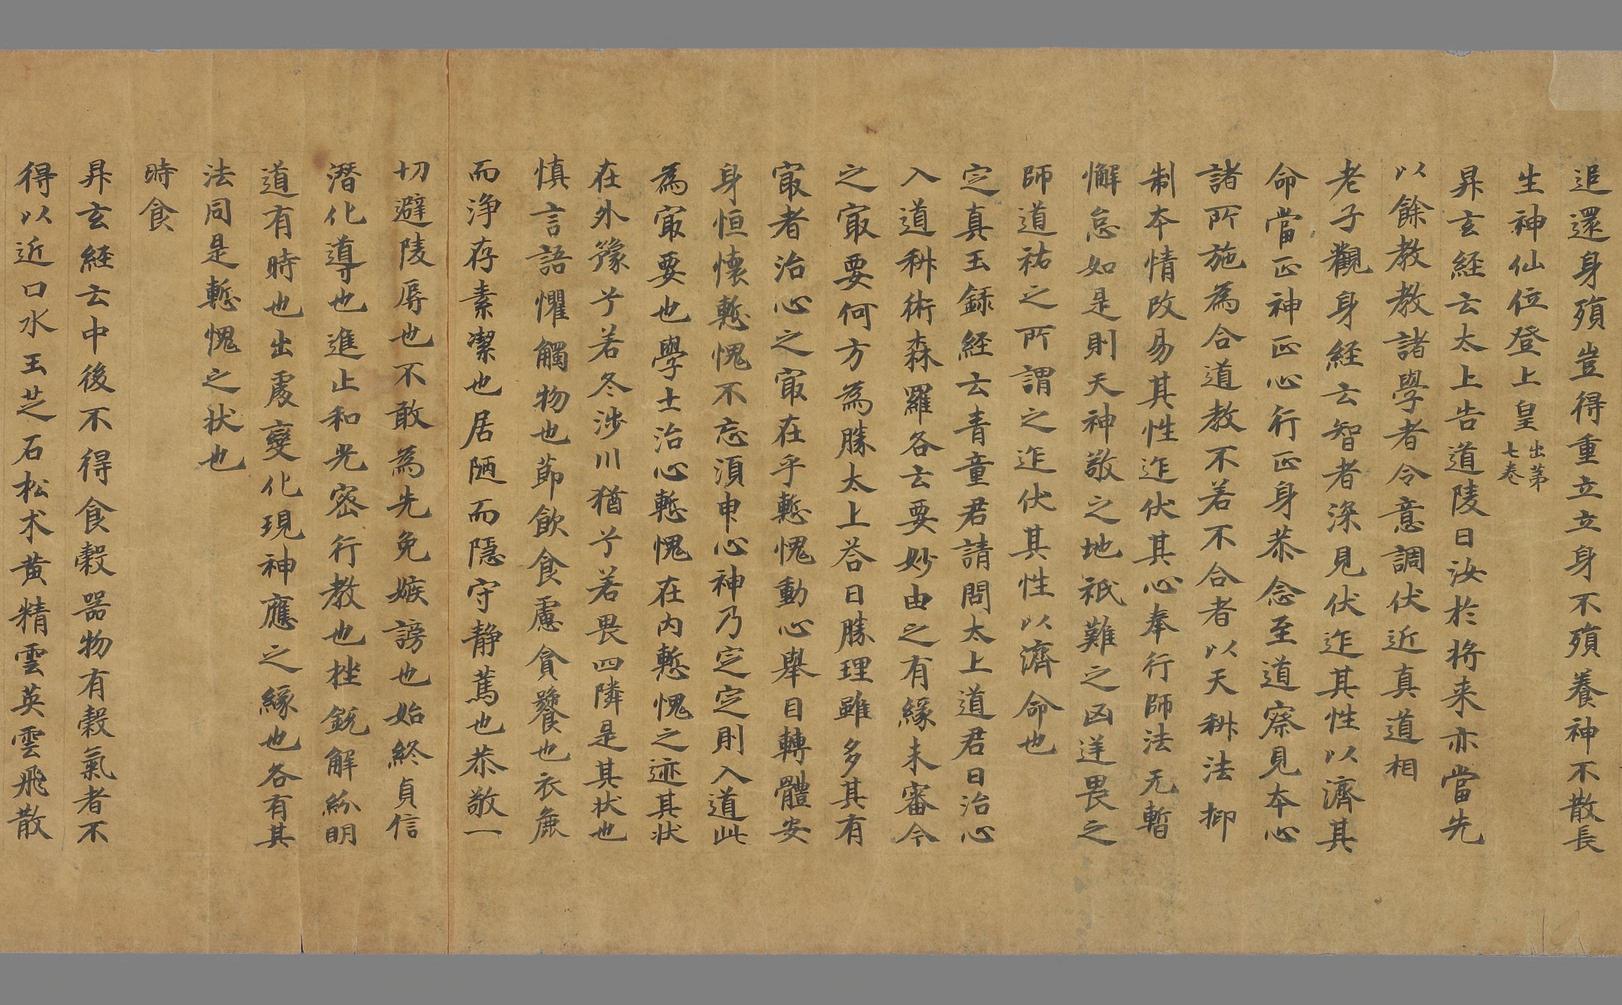 追還身殞豈得重立立身不殞養神不散長
生神仙位登上皇出第七卷
昇玄経云太上告道陵曰汝於将来亦當先
以餘教教諸學者令意調伏近真道相
老子觀身経云智者深見伏迕其性以濟其
命當正神正心行正身恭念至道察見本心
諸所施為合道教不若不合者以天科法抑
制本情改易其性迕伏其心奉行師法无暫
懈怠如是則天神敬之地祇難之凶逆畏之
師道祐之所謂之迕伏其性以濟命也
定真玉録経云青童君請問太上道君曰治心
入道科術森羅各云要妙由之有緣未審今
之㝡要何方為勝太上荅曰勝理雖多其有
㝡者治心之㝡在乎慙愧動心舉目轉體安
身恒懷慙愧不忘湏申心神乃定定則入道此
為㝡要也學士治心慙愧在内慙愧之迹其状
在外豫兮若冬涉川猶兮若畏四隣是其状也
慎言語懼觸物也莭飲食慮貪饕也衣麁
而浄存素潔也居陋而隱守静篤也恭敬一
切避陵辱也不敢為先免嫉謗也始終貞信
潛化導也進止和光密行教也挫銳解紛明
道有時也出處變化現神應之緣也各有其
法同是慙愧之状也
時食
昇玄経云中後不得食穀噐物有穀氣者不
得以近口水玉芝石松术黄精雲英雲飛散